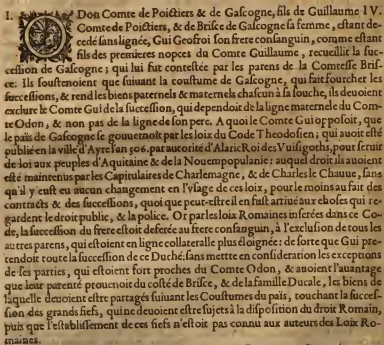 I. ODon Comte de Poictiers & de Gascogne, fils de Guillaume IV.
Comte de Poictiers, & de Brisce de Gascogne sa femme, estant de-
cedé sans lignée, Gui Geofroi son frere consanguin, comme estant
fils des premieres nopces du Comte Guillaume, recueillit la suc-
cession de Gascogne; qui lui fut contestée par les parens de la Comtesse Bris-
ce. Ils soustenoient que suiuant la coustume de Gascogne, qui fait fourcher les
successions, & rend les biens paternels & maternels chascun à sa souche, ils deuoient
exclurre le Comte Gui de la succession, qui dependoit de la ligne maternelle du Com-
te Odon, & non pas de la ligne de son pere. A quoi le Comte Gui opposoit, que
le païs de Gascogne se gouuernoit par les loix du Code Theodosien; qui auoit esté
publié en la ville d'Ayre l'an 506. par autorité d'Alaric Roi des Vuisgoths, pour seruir
de loi aux peuples d'Aquitaine & de la Nouempopulanie: auquel droit ils auoient
esté maintenus par les Capitulaires de Charlemagne, & de Charles le Chauue, sans
qu'il y eust eu aucun changement en l'vsage de ces loix, pour le moins au fait des
contracts & des successions, quoi que peut-estre il en fust arriué aux choses qui re-
gardent le droit public, & la police. Or par les loix Romaines inserées dans ce Co-
de, la succession du frere estoit deferée au frere consanguin, à l'exclusion de tous les
autres parens, qui estoient en ligne collateralle plus éloignée: de sorte que Gui pre-
tendoit toute la succession de ce Duché, sans mettre en consideration les exceptions
de ses parties, qui estoient fort proches du Comte Odon, & auoient l'auantage
que leur parenté prouenoit du costé de Brisce, & de la famille Ducale, les biens de
laquelle deuoient estre partagés suiuant les Coustumes du païs, touchant la succes-
sion des grands fiefs, qui ne deuoient estre sujets à la disposition du droit Romain,
puis que l'establissement de ces fiefs n'estoit pas connu aux auteurs des Loix Ro-
maines.